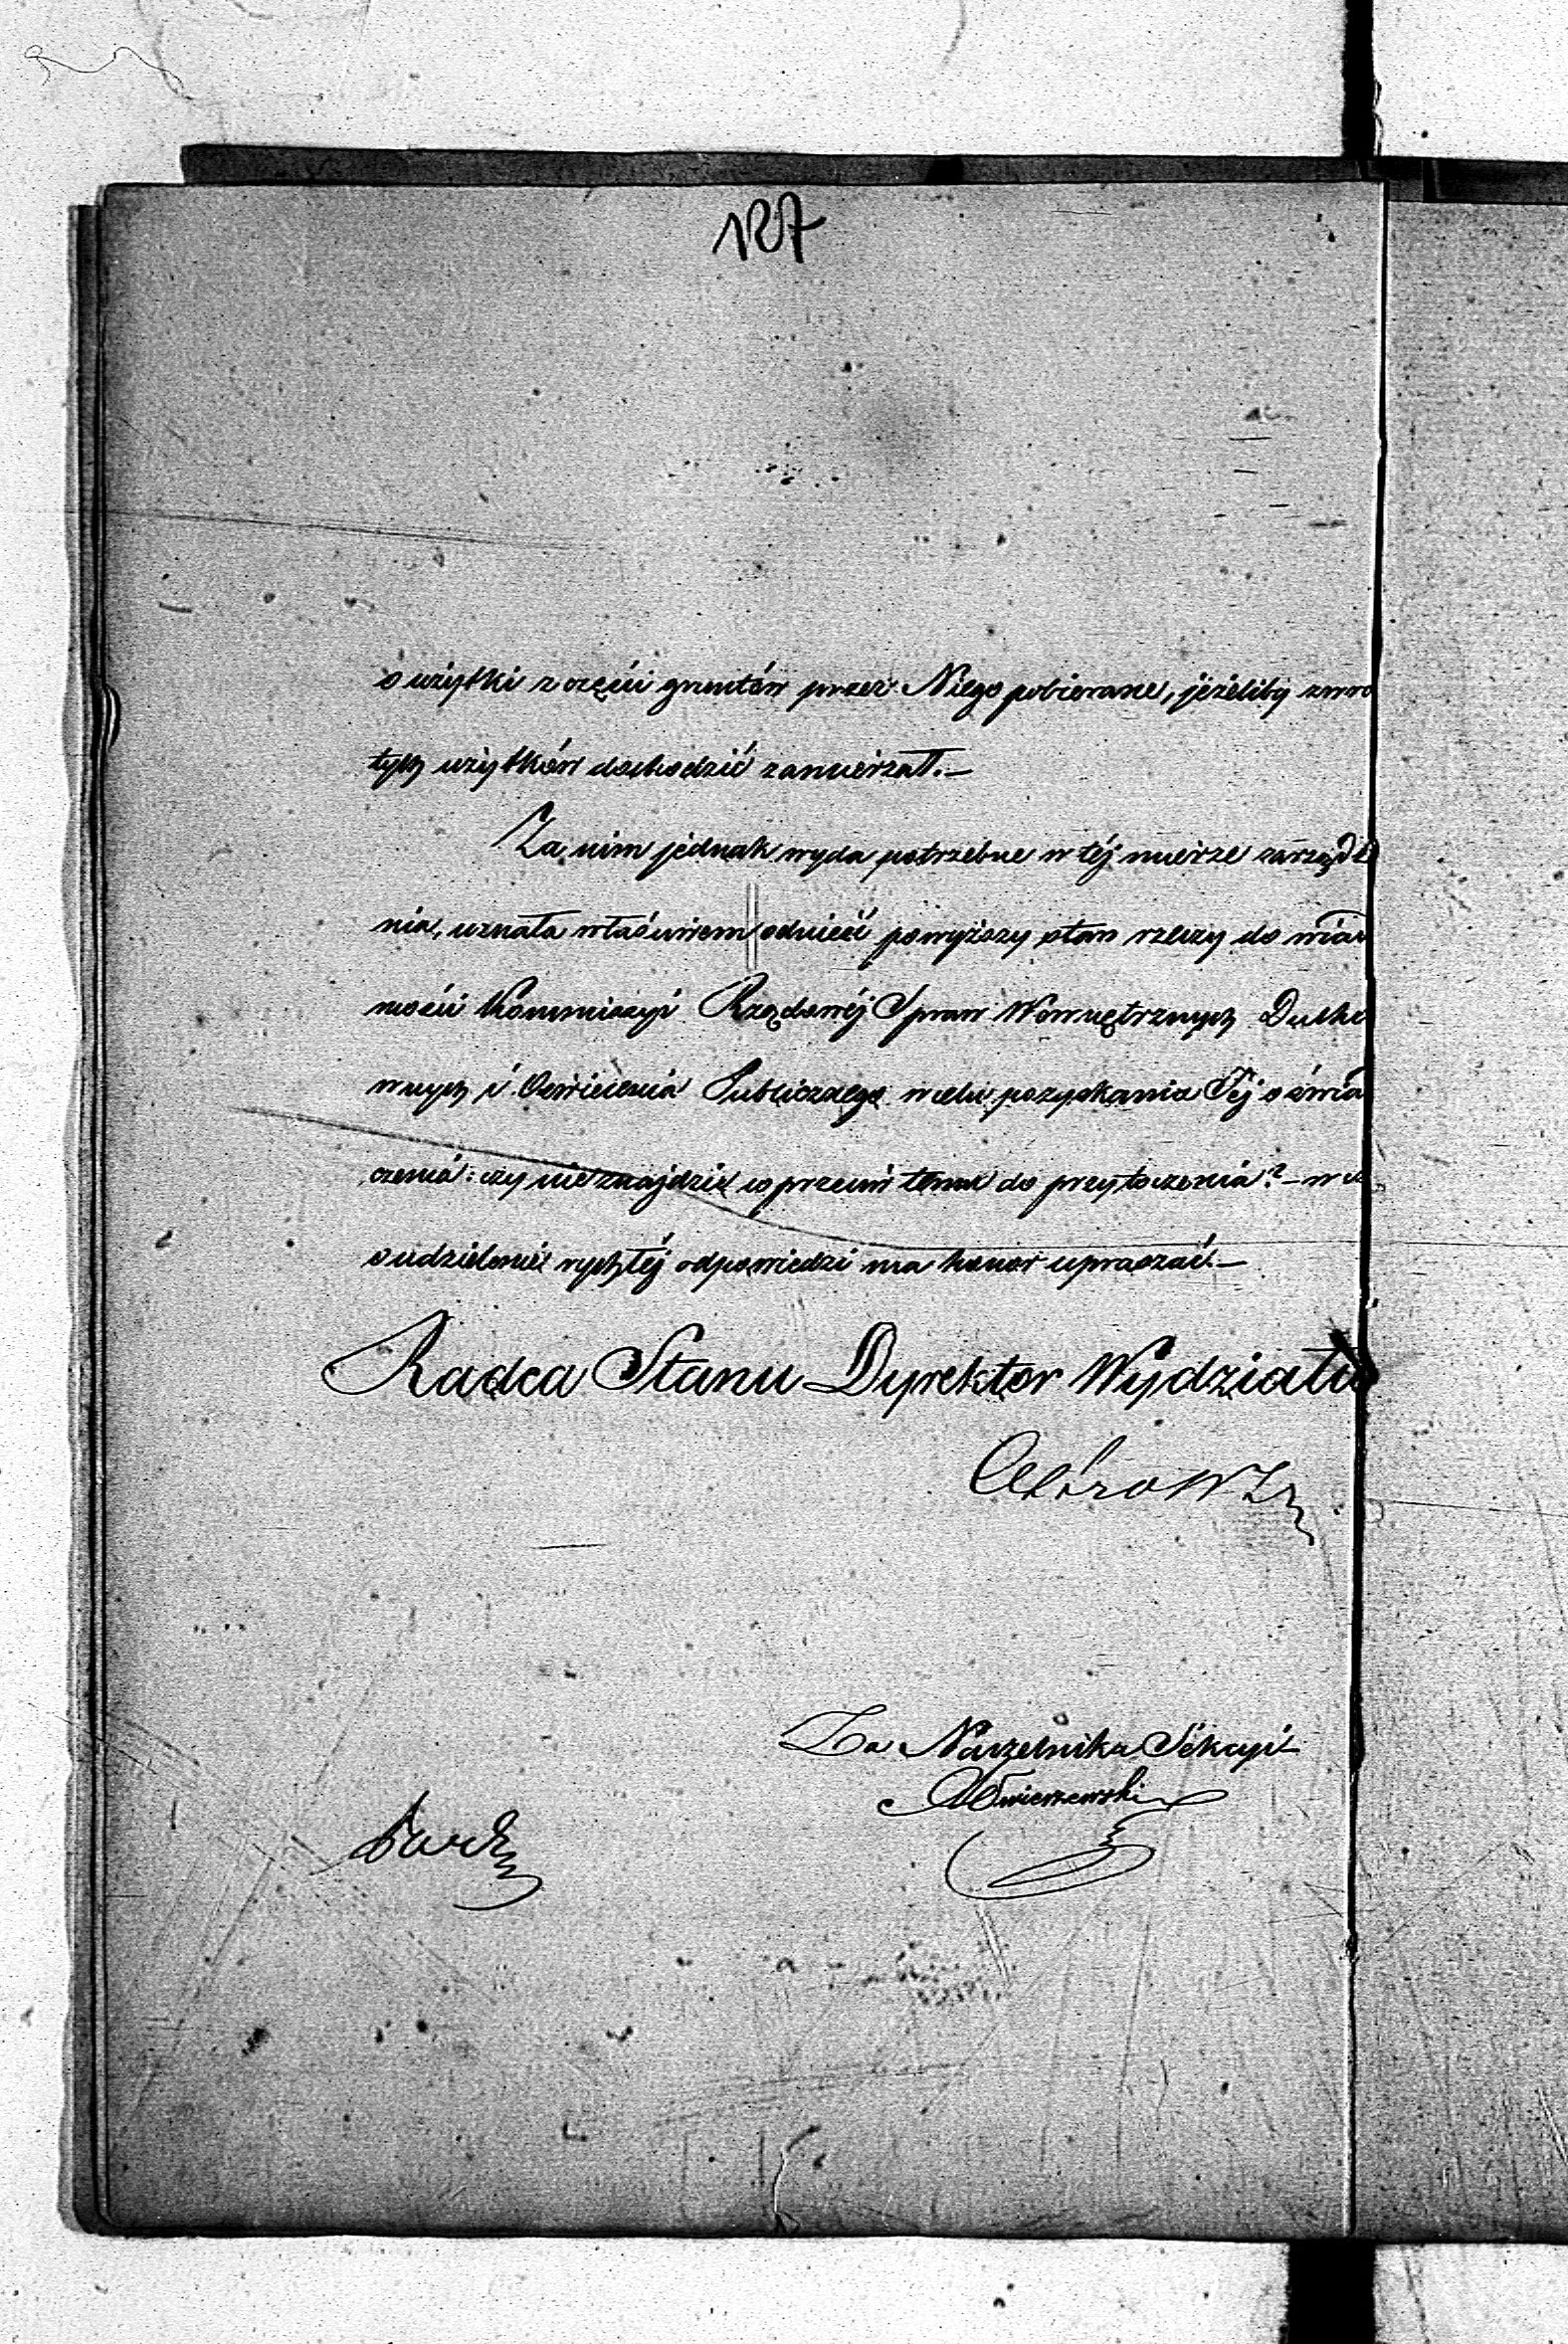 127
o użytki z części gruntów przez Niego pobierane, jeżeliby zwro
tych użytków dochodzić zamierzał.—
Za nim jednak wyda potrzebne w téj mierze zarządze
nia, uznała właściwem odnieść powyższy stan rzeczy do wiado
mości Kommissyi Rządowéj Spraw Wewnętrznych Ducho
wnych i Oświecenia Publicznego w celu pozyskania Jéj oświa
czenia: czy nie znajdzie co przeciw temu do przytoczenia? —
o udzielenie rychłéj odpowiedzi ma honor upraszać.—
Radca Stanu Dyrektor Wydziału
Za Naczelnika Sekcyi